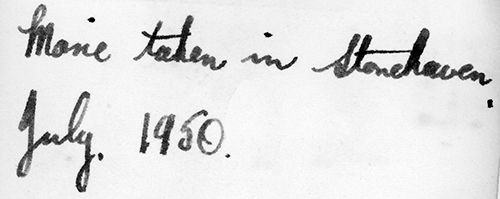 Movie taken in Stonehaven.
July. 1950.